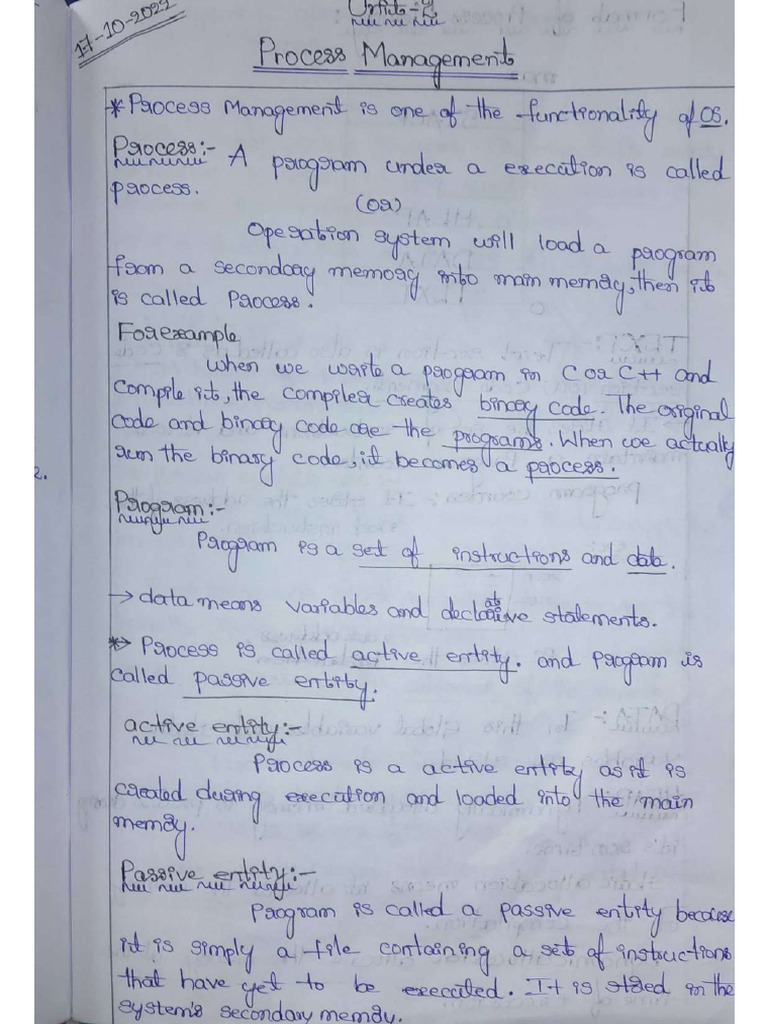 17-10-2022
Unit-2
Process Management
* Process Management is one of the functionality of OS.
Process:- A program under a execution is called
process.
(or)
Operation system will load a program
from a secondary memory into main memory, then it
is called Process.
For example
When we write a program in C or C++ and
compile it, the compiler creates binary code. The original
code and binary code are the programs. When we actually
run the binary code, it becomes a process.
2.
Program:-
Program is a set of instructions and data.
→ data means variables and declarative statements.
* Process is called active entity. and program is
called passive entity.
active entity:-
Process is a active entity as it is
created during execution and loaded into the main
memory.
Passive entity:-
Program is called a passive entity because
it is simply a file containing a set of instructions
that have yet to be executed. It is stored in the
system's secondary memory.